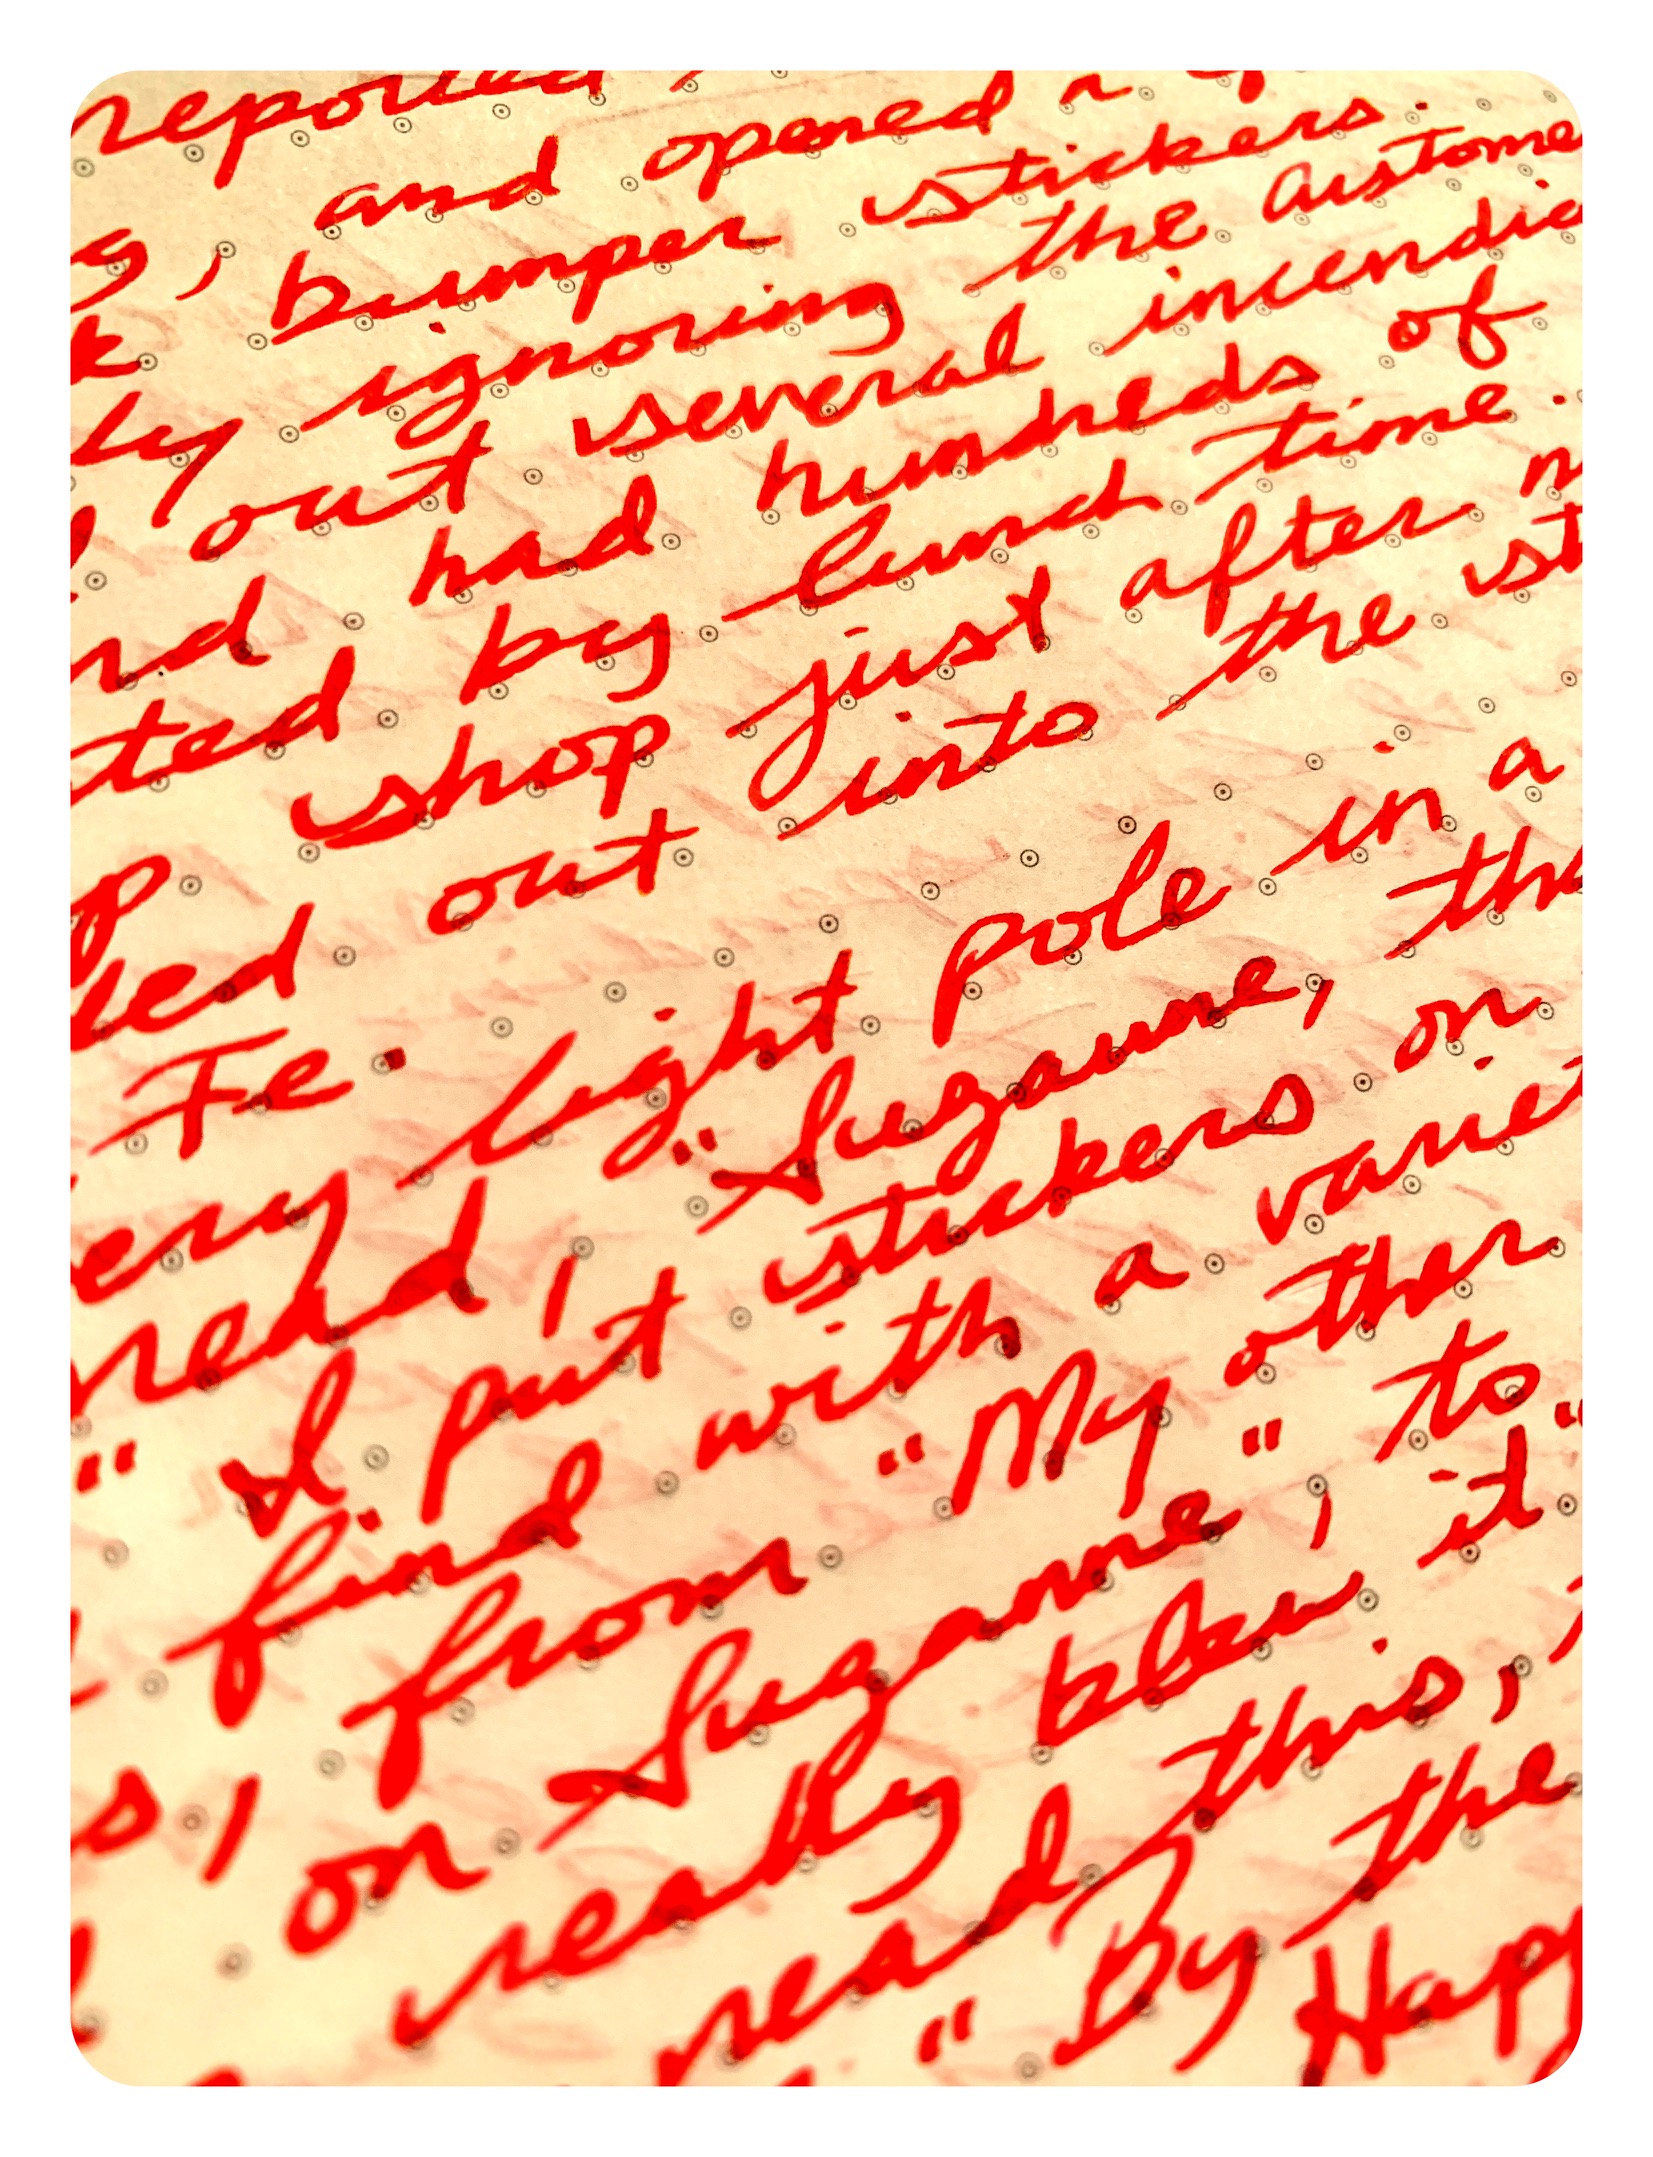 reported
, and opened a
bumper stickers.
ignoring the custome
out several incendia
had hundreds of
ted by lunch time.
shop just after
out into the st
Fe.
ery light pole in a
read, "Suzanne, the
" I put stickers on
find with a variet
from "My other
on Suzanne," to
really blew it"
read this,
" By the
Happ